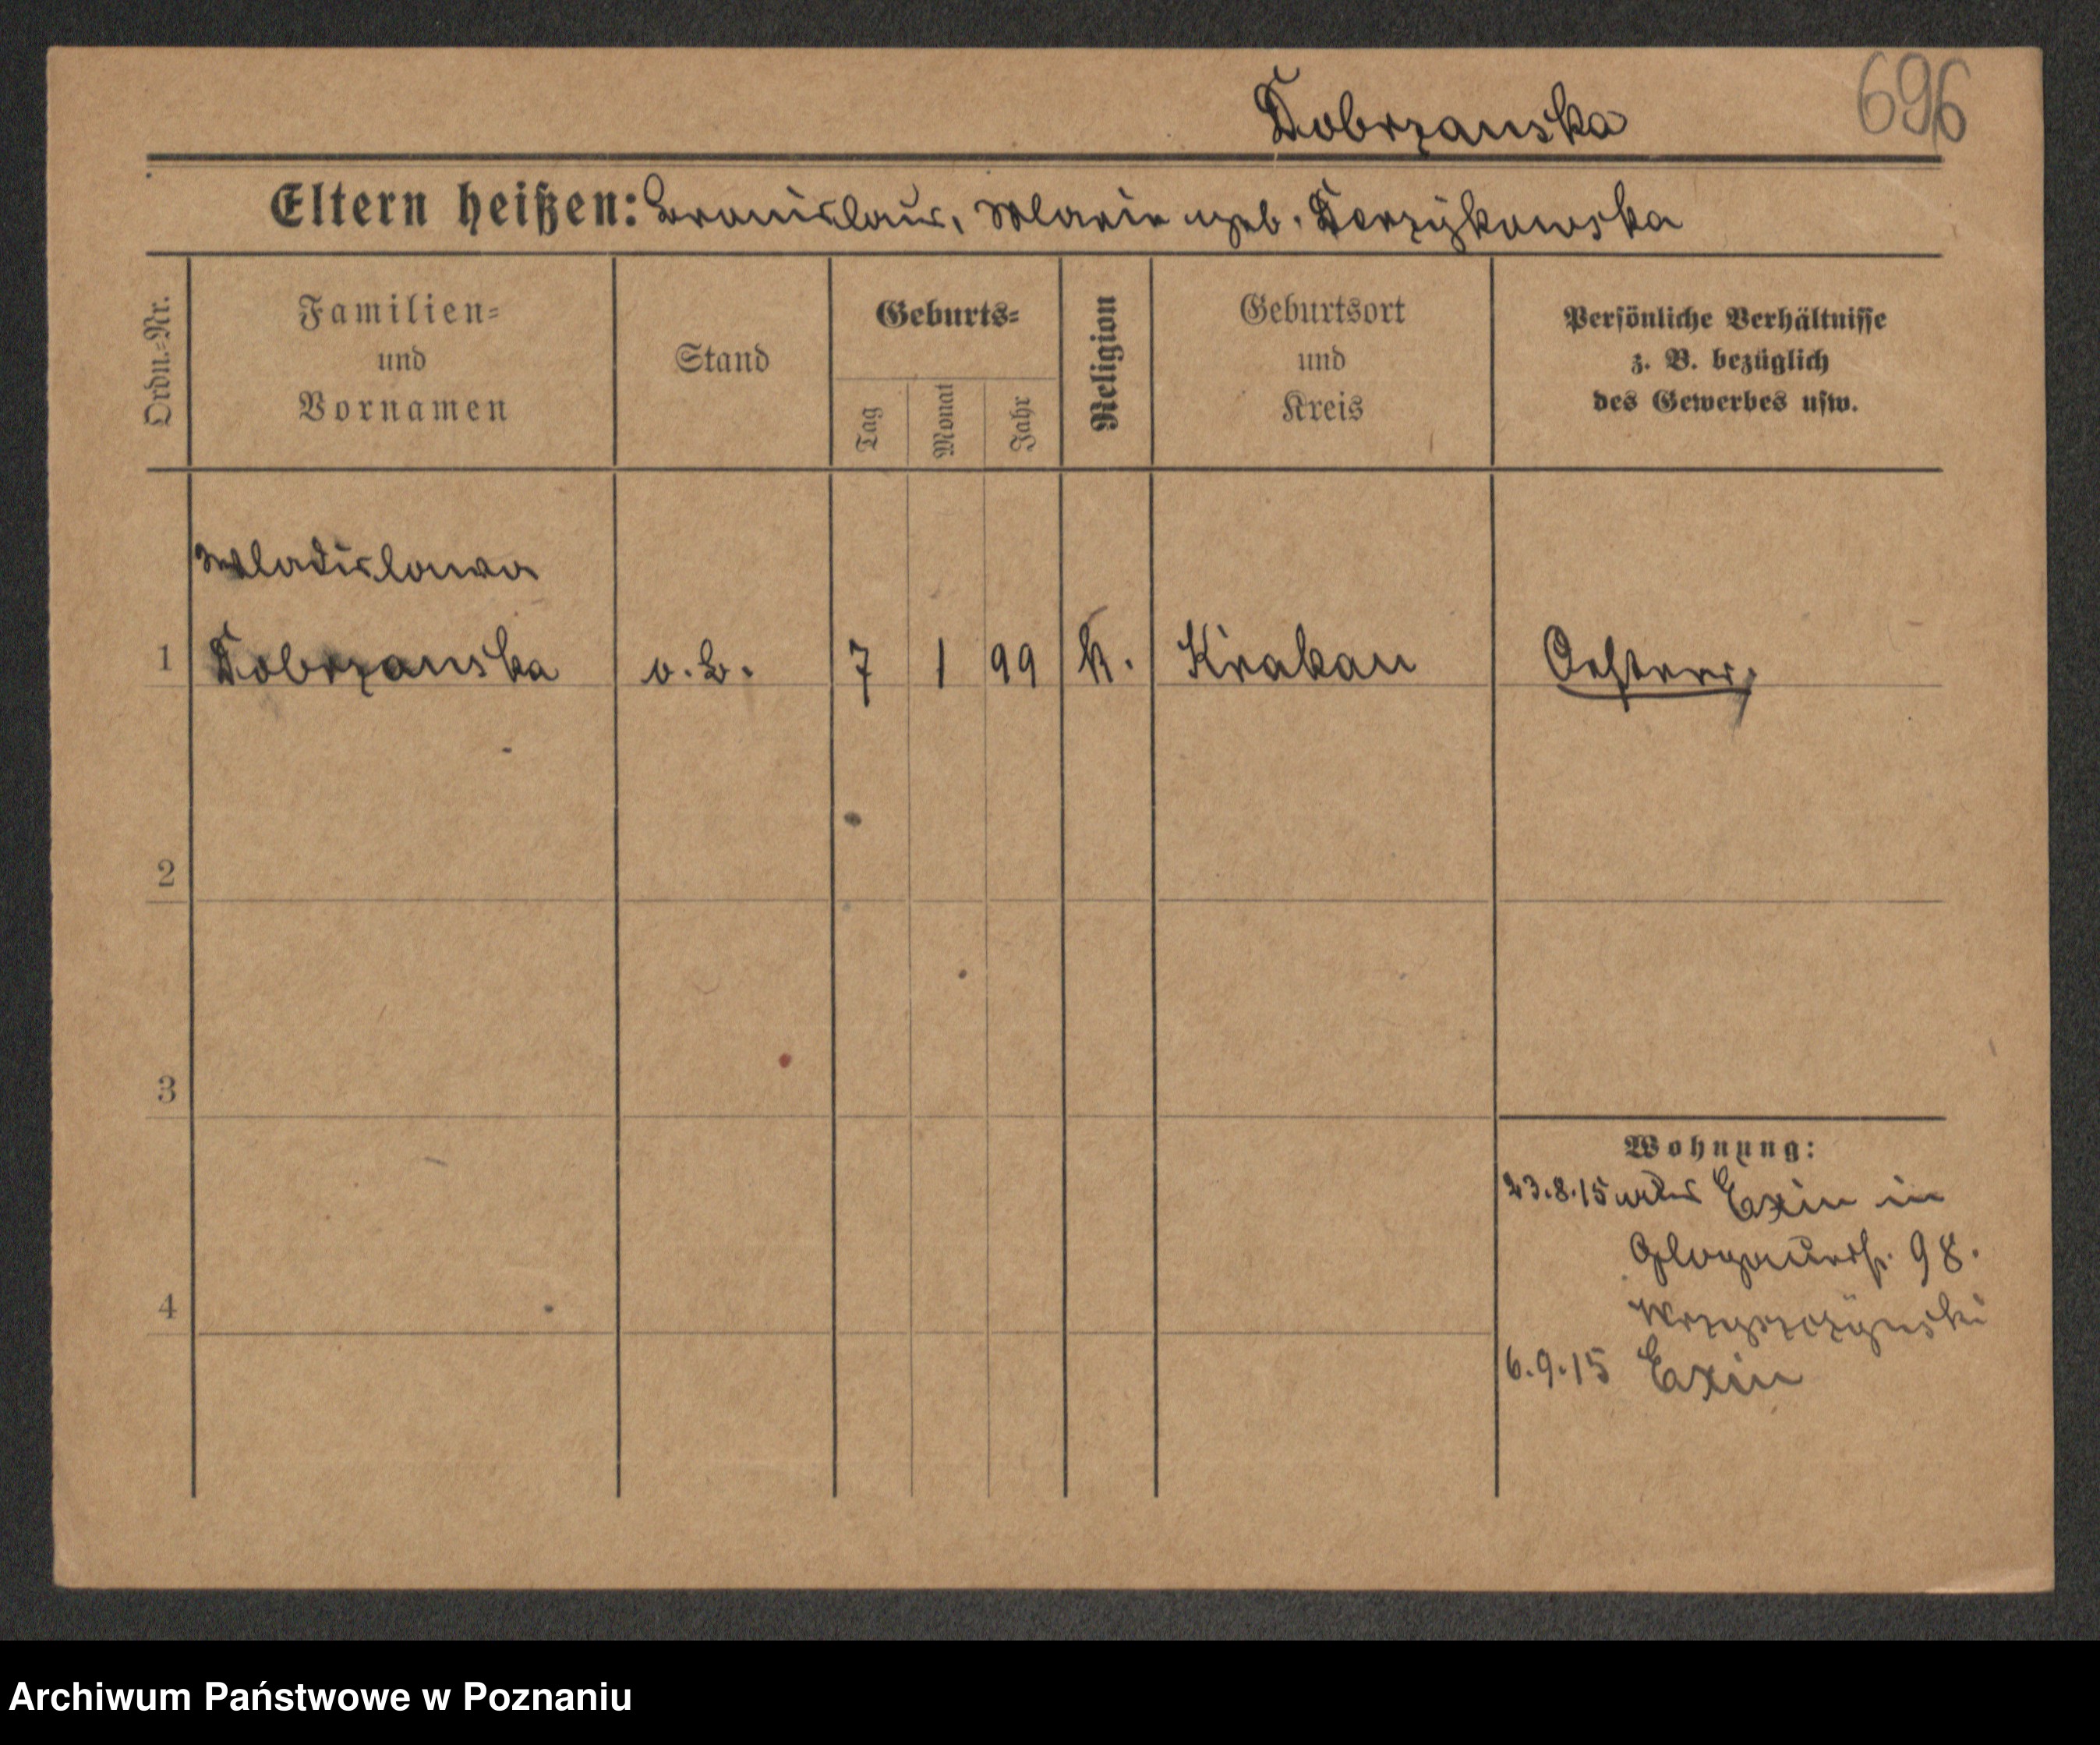 696
Dobrzanska
Eltern heißen: Bronislaus, Marie geb.
Ordn.-Nr.
Familien-
und
Vornamen
Stand
Geburts-
Tag
Monat
Jahr
Religion
Geburtsort
und
Kreis
Persönliche Verhältnisse
z. B. bezüglich
des Gewerbes usw.
Wladislawa
1 Dobrzanska o. B. 7 1 99 k. Krakau Oesterr.
2
3
4
Wohnung:
23.8.15 Exin in
Glogauerstr. 98.
6.9.15 Exin
Archiwum Państwowe w Poznaniu